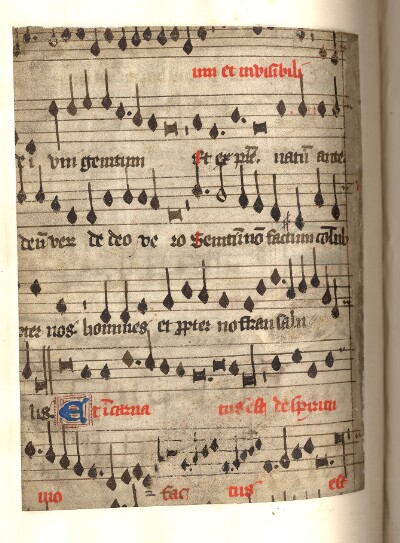 um et invisibili
i vnigenitum Et ex p̄re. natū ante
deū ver de deo ve ro Genitū nō factum
pter nos homines et ꝓpter nostran salu
lis Et īcarna tus est de spiritu
mo fac tus est